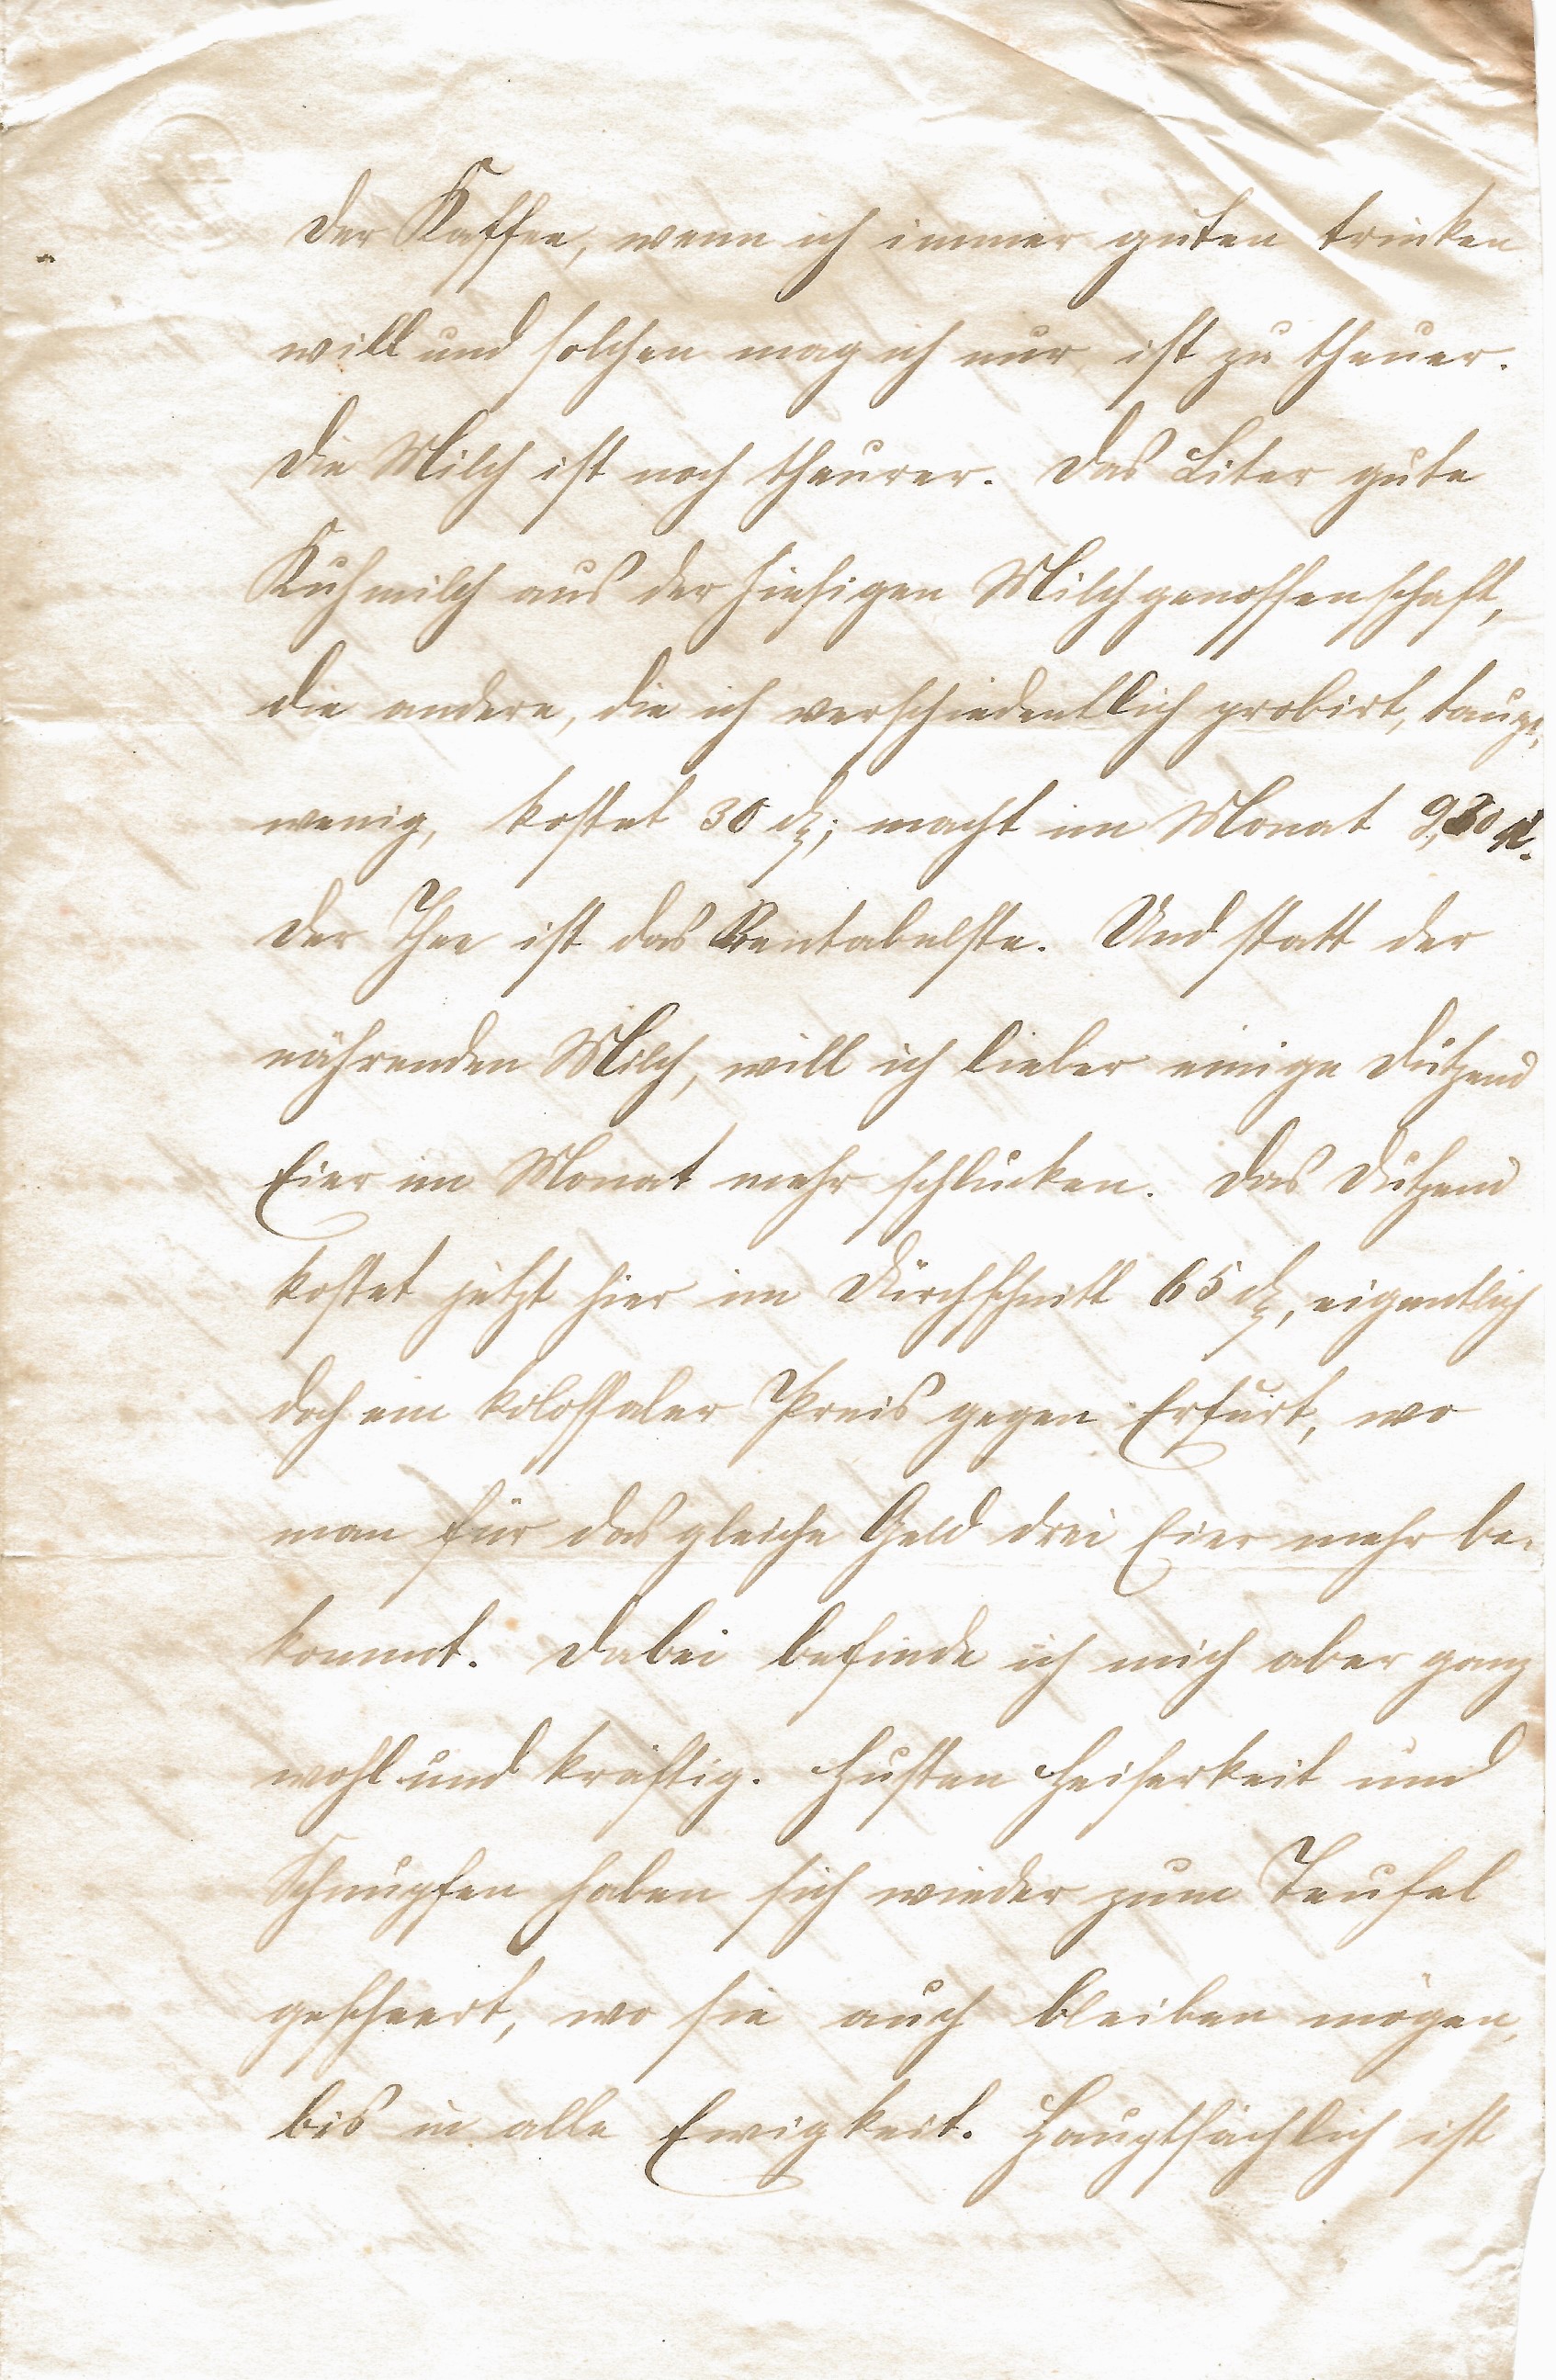 Der Kaffee, wenn ich immer guten trinken
will und solchen mag ich nur, ist zu theuer.
Die Milch ist noch theurer. Das Liter gute
Kuhmilch aus der hiesigen Milchgenossenschaft,
die andere, die ich verschiedentlich probirt, taugt
wenig, kostet 30 ₰; macht im Monat 9,30 M.
Der Thee ist das Rentabelste. Und statt der
nährenden Milch, will ich lieber einige Dutzend
Eier im Monat mehr schlucken. Das Dutzend
kostet jetzt hier im Durchschnitt 65 ₰, eigentlich
doch ein kolossaler Preis gegen Erfurt, wo
man für das gleiche Geld drei Eier mehr be-
kommt. Dabei befinde ich mich aber ganz
wohl und kräftig. Husten Heiserkeit und
Schnupfen haben sich wieder zum Teufel
gescheert, wo sie auch bleiben mögen,
bis in alle Ewigkeit. Hauptsächlich ist